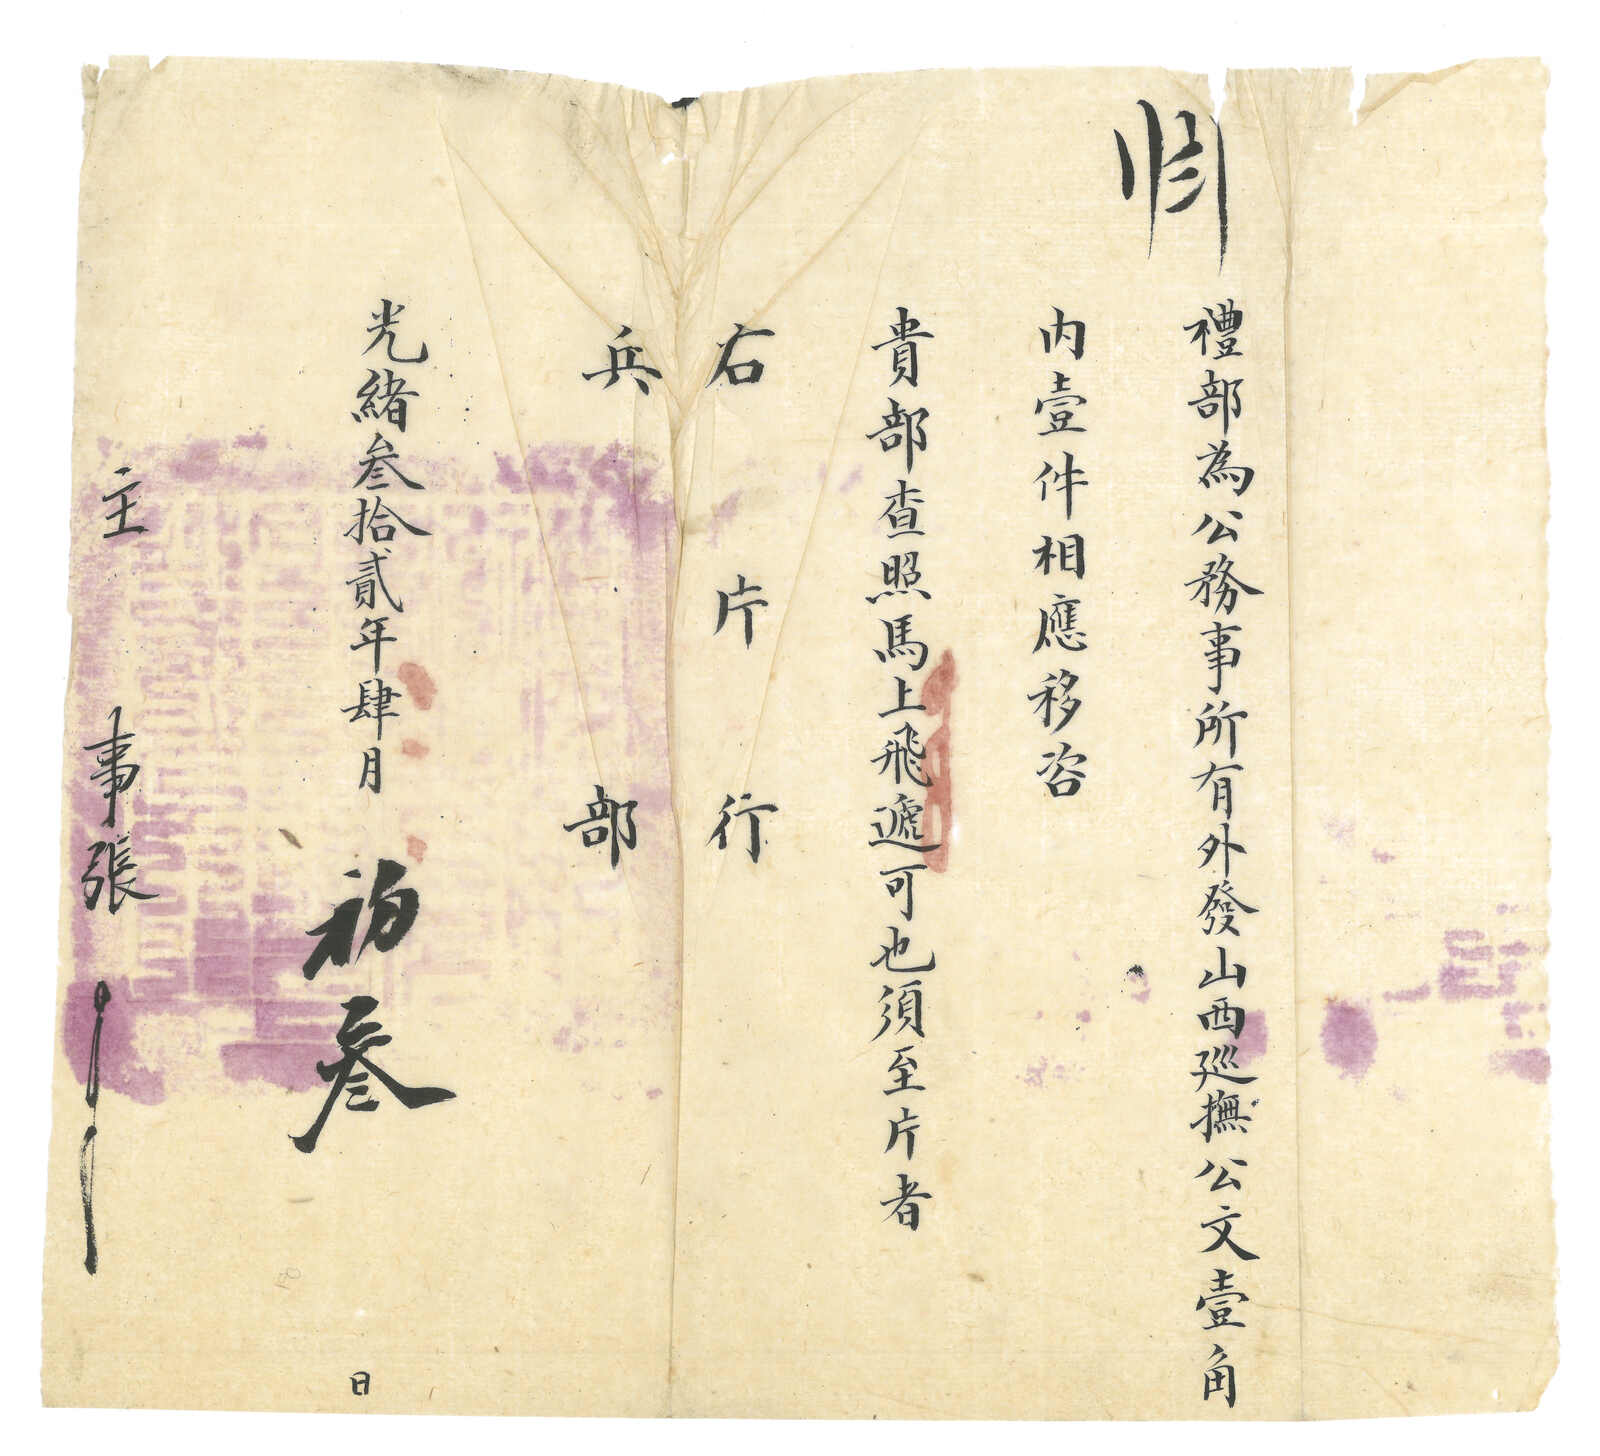 禮部為公務事所有外發山西巡撫公文壹角
内壹件相應移咨
貴部查照馬上飛遞可也須至片者
右片行
兵部
光緒叁拾貳年肆月初叁日
主事張